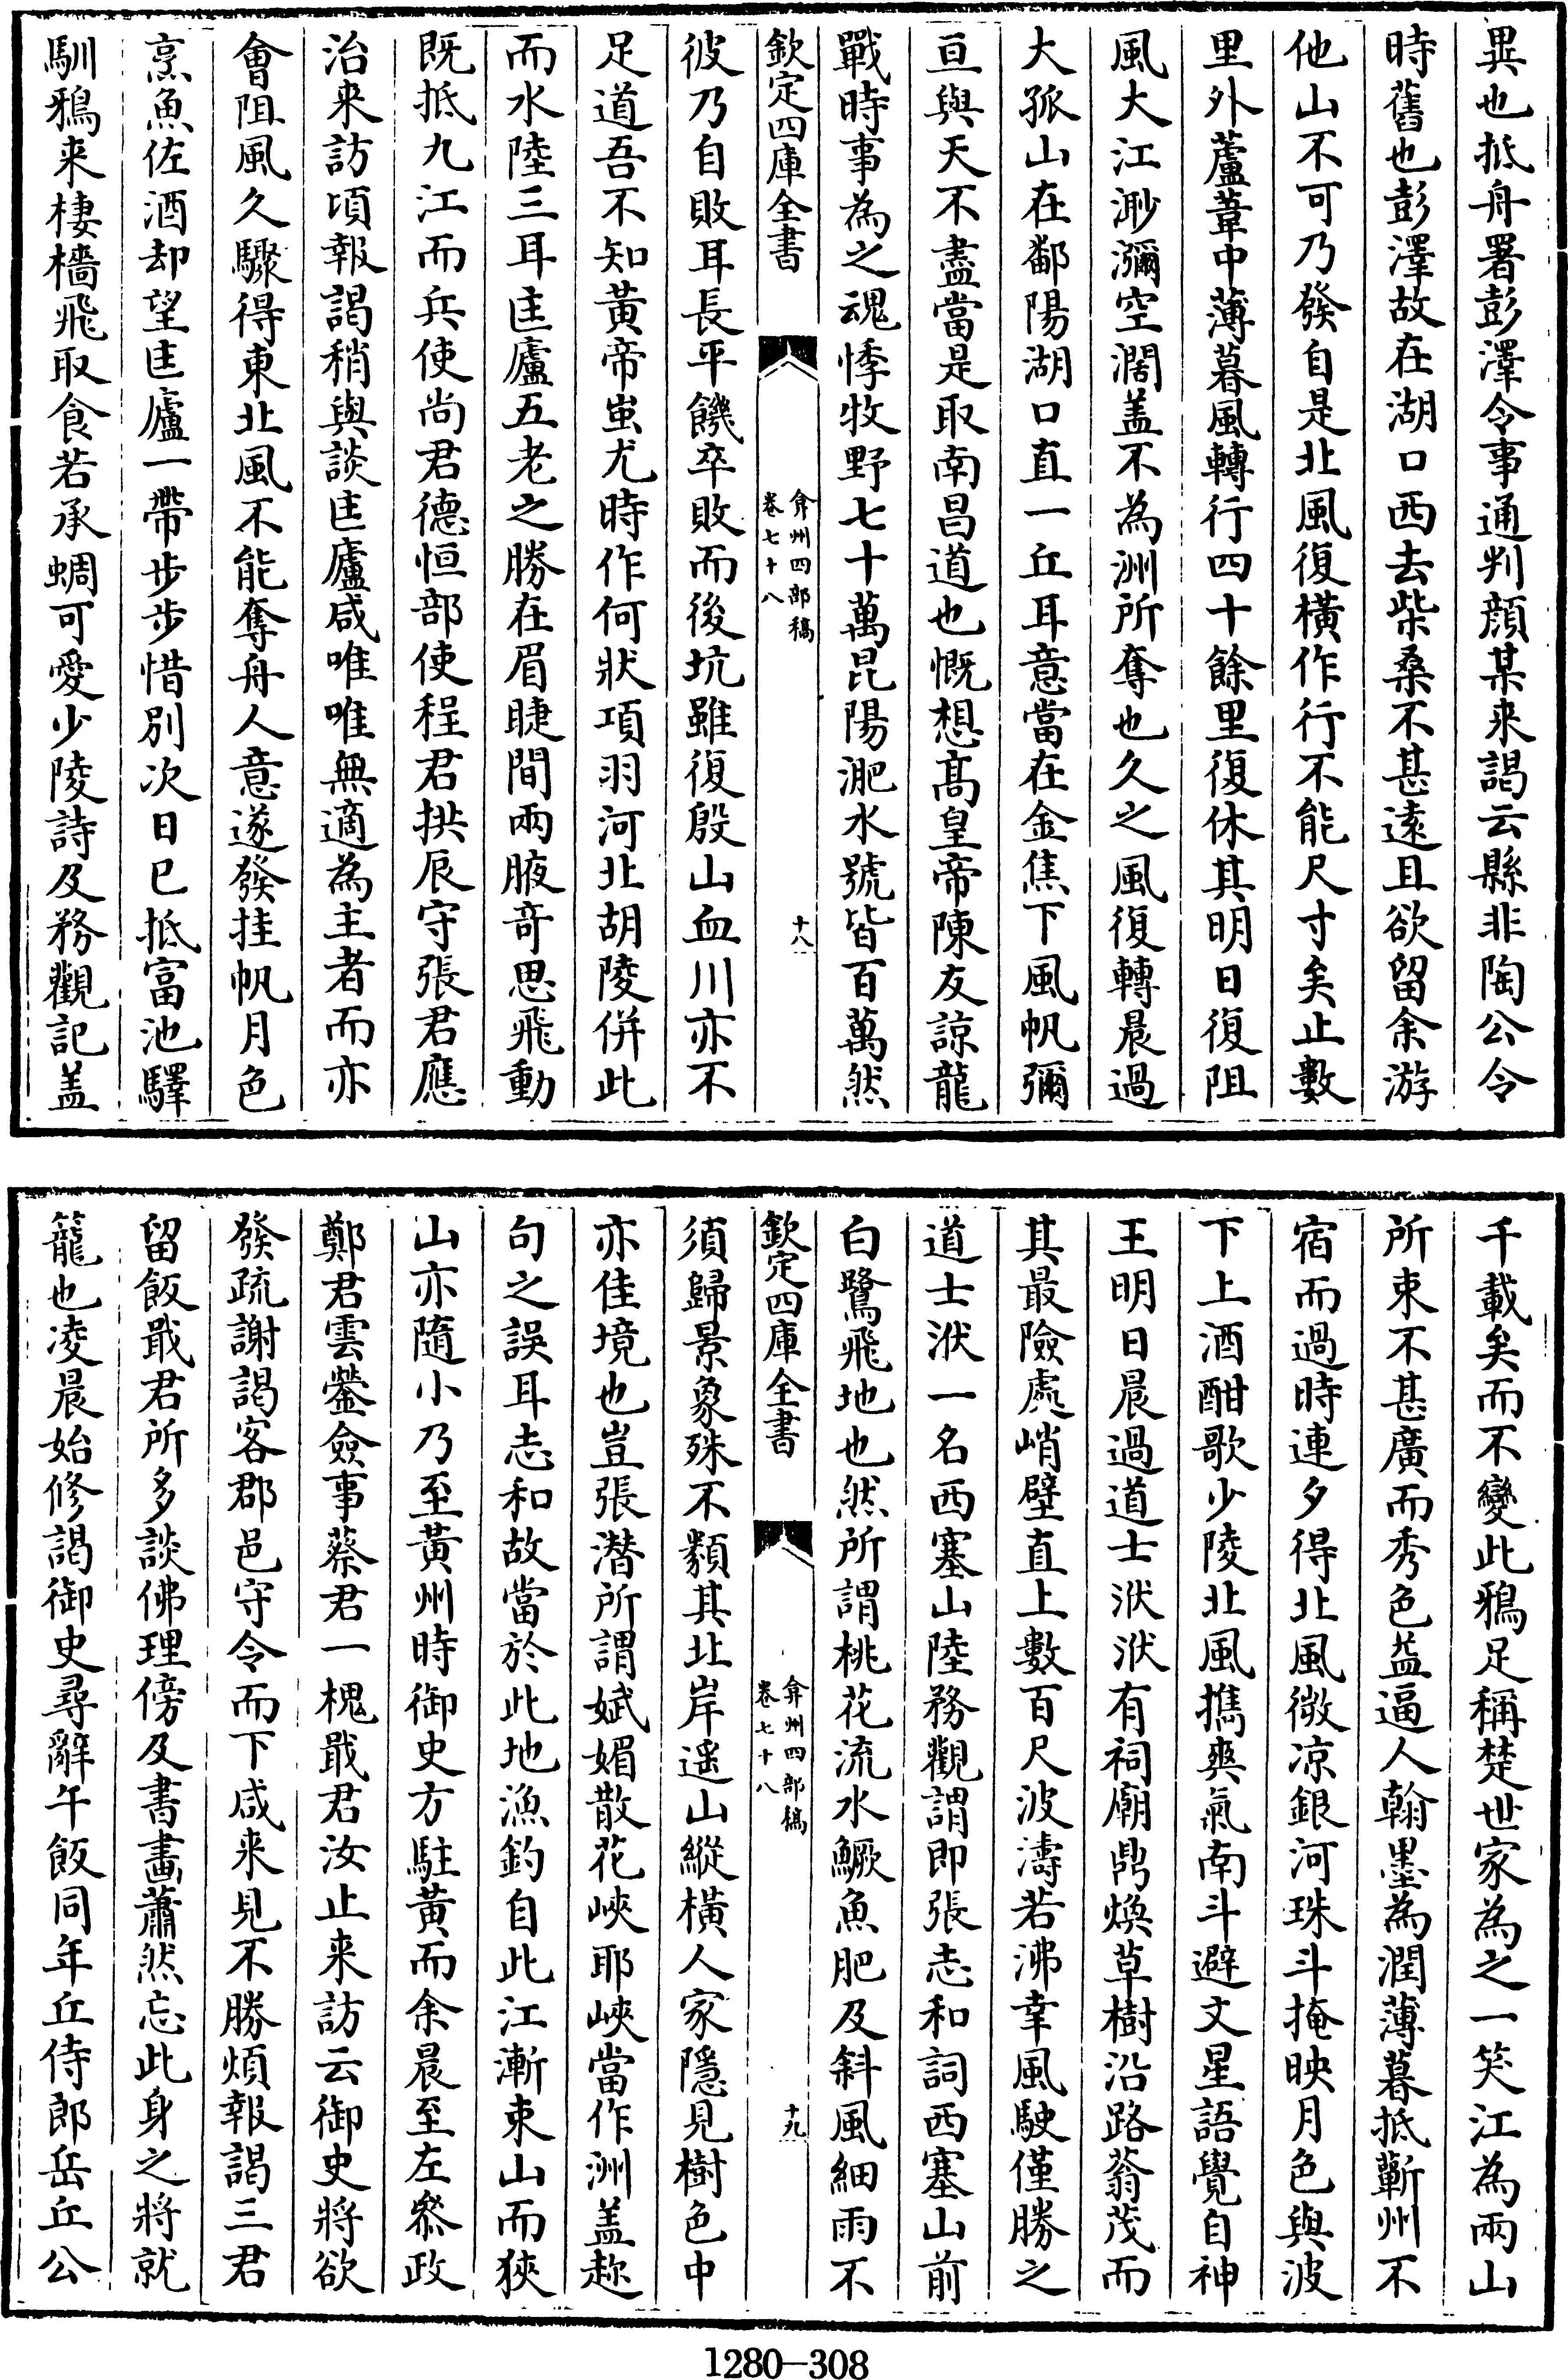 異也抵舟署彭澤令事通判顔某来謁云縣非陶公令
時舊也彭澤故在湖口西去柴桑不甚逺且欲留余游
他山不可乃發自是北風復橫作行不能尺寸矣止數
里外蘆葦中薄暮風轉行四十餘里復休其明日復阻
風大江渺瀰空濶盖不為洲所奪也久之風復轉晨過
大孤山在鄱陽湖口直一丘耳意當在金焦下風帆彌
亘與天不盡當是取南昌道也慨想髙皇帝陳友諒龍
戰時事為之魂悸牧野七十萬昆陽淝水號皆百萬然
欽定四庫全書
弇州四部稿
卷七十八
十八
彼乃自敗耳長平饑卒敗而後坑雖復殷山血川亦不
足道吾不知黄帝蚩尤時作何狀項羽河北胡陵併此
而水陸三耳匡廬五老之勝在眉睫間兩腋竒思飛動
既抵九江而兵使尚君德恒部使程君拱辰守張君應
治来訪頃報謁稍與談匡廬咸唯唯無適為主者而亦
會阻風久驟得東北風不能奪舟人意遂發挂帆月色
烹魚佐酒却望匡廬一帶步步惜別次日巳抵富池驛
馴鴉来棲檣飛取食若承蜩可愛少陵詩及務觀記盖
千載矣而不變此鴉足稱楚世家為之一笑江為兩山
所束不甚廣而秀色益逼人翰墨為潤薄暮抵蘄州不
宿而過時連夕得北風微凉銀河珠斗掩映月色與波
下上酒酣歌少陵北風擕爽氣南斗避文星語覺自神
王明日晨過道士洑洑有祠廟鼎煥草樹沿路蓊茂而
其最險處峭壁直上數百尺波濤若沸幸風駛僅勝之
道士洑一名西塞山陸務觀謂即張志和詞西塞山前
白鷺飛地也然所謂桃花流水鱖魚肥及斜風細雨不
欽定四庫全書
弇州四部稿
卷七十八
十九
須歸景象殊不類其北岸遥山縱横人家隱見樹色中
亦佳境也豈張潜所謂娬媚散花峽耶峽當作洲盖趂
句之誤耳志和故當於此地漁釣自此江漸束山而狹
山亦隨小乃至黄州時御史方駐黄而余晨至左叅政
鄭君雲鎣僉事蔡君一槐戢君汝止来訪云御史將欲
發疏謝謁客郡邑守令而下咸来見不勝煩報謁三君
留飯戢君所多談佛理傍及書畫蕭然忘此身之將就
籠也凌晨始修謁御史尋辭午飯同年丘侍郎岳丘公
1280—308